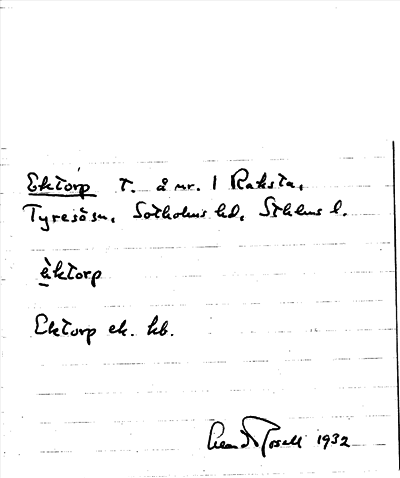 Ektorp t. å nr. 1 Raksta,
Tyresö sn, Sotholms hd, Sthlms l.
èktorp
Ektorp ek. kb.
1932